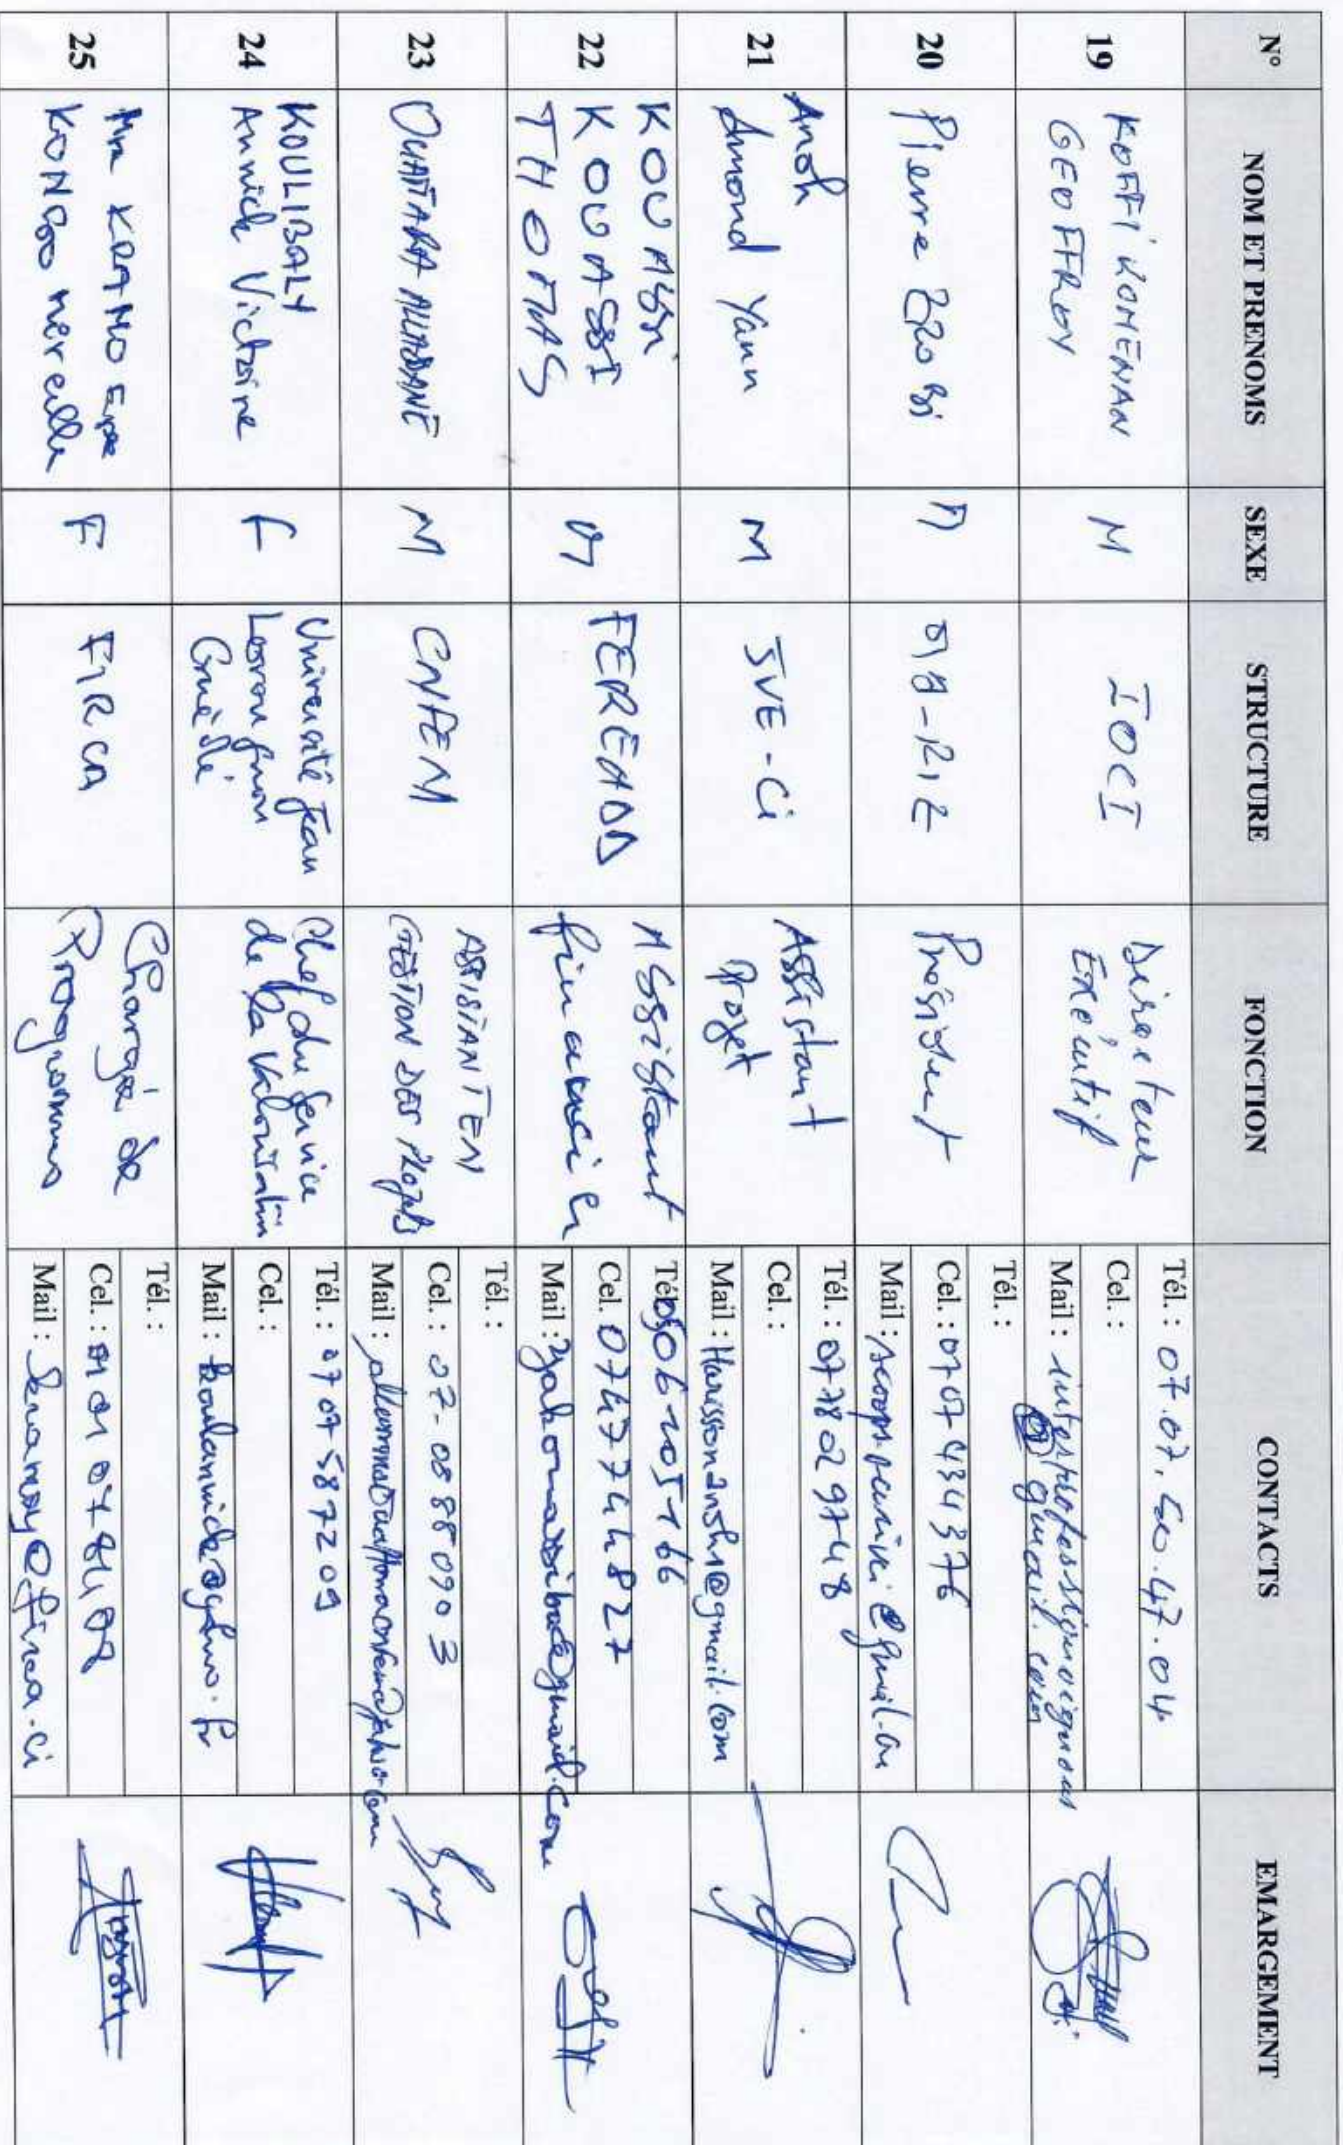 N° NOM ET PRENOMS SEXE STRUCTURE FONCTION CONTACTS EMARGEMENT
19
KOFFI KOMENAN
GEOFFROY
M
IOCI
Directeur
Exécutif
Tél. : 07.07.40.47.04
Cel. :
Mail : interprofessionoignons
@gmail.com
20
Pierre BRO Bi
M
OIA-RIZ
Président
Tél. :
Cel. : 0707434376
Mail :
21
Anoh
Amond Yann
M
JVE-Ci
Assistant
Projet
Tél. : 0778029748
Cel. :
Mail : Harisson2nsh1@gmail.com
22
KOUASSI
KOUASSI
THOMAS
M
FEREADD
Assistant
financier
Tél. 0506205166
Cel. 0747744827
Mail :
23
OUATTARA ALLASSANE
M
CNFEM
ASSISTANT EN
GESTION DES PROJETS
Tél. :
Cel. : 07-08880903
Mail :
24
KOULIBALY
Annick Victoire
F
Université Jean
Lorougnon
Guédé
Chef du Service
de la Valorisation
Tél. : 0707587209
Cel. :
Mail : koulannick@yahoo.fr
25
Mme KRAMO Epse
KONGO Mereille
F
FIRCA
Chargée de
Programmes
Tél. :
Cel. : 0101078408
Mail :